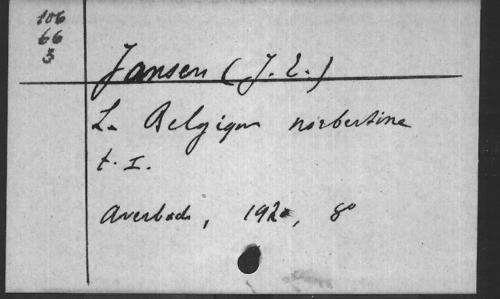 106
66
3
Jansen (J. E.)
La Belgique norbertine
t. I.
Averbode, 1920, 8°